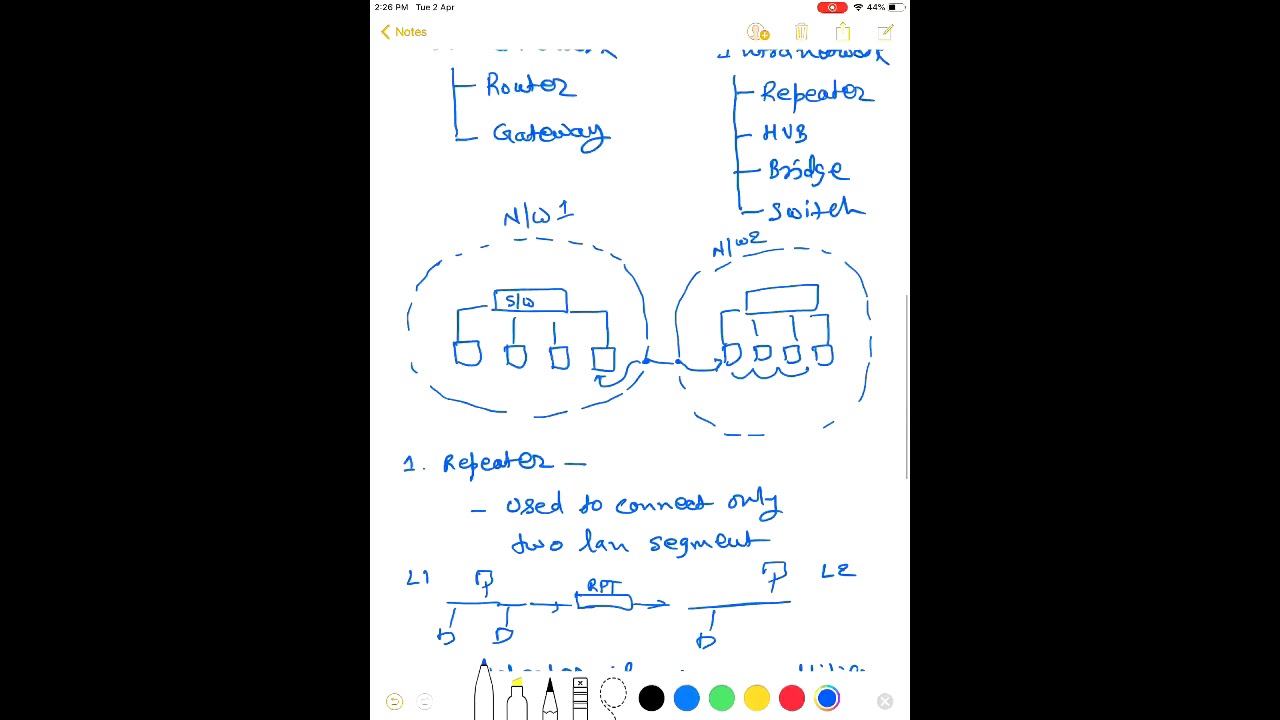 2:26 PM Tue 2 Apr
44%
Notes
Router
Gateway
Repeater
HUB
Bridge
Switch
N/W 1
N/W2
S/W
1. Repeater —
- Used to connect only
two lan segment
L1
RPT
L2